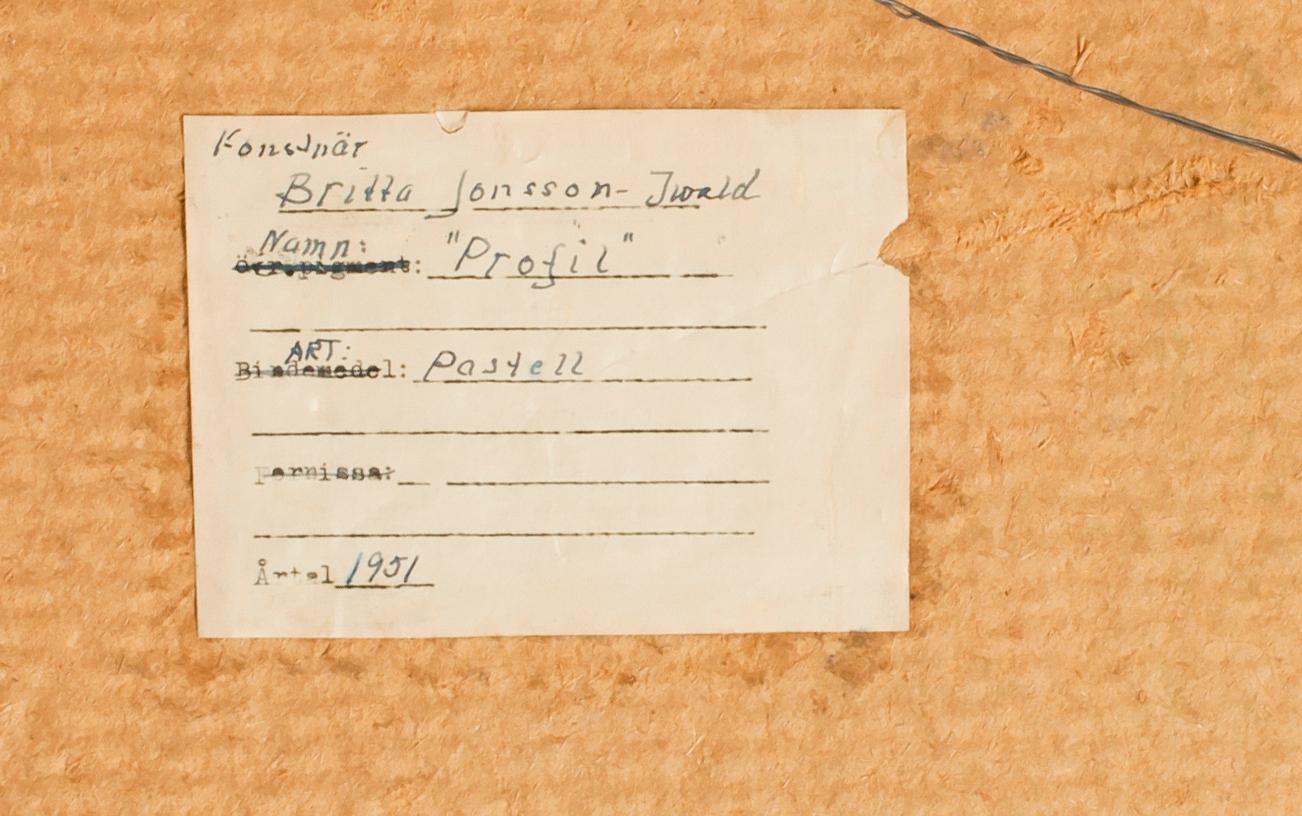 Konstnär
Britta Jonsson-Iwald
Namn: "Profil"
ART:
Bindemedel: Pastell
Fernissa:
Årtal 1951